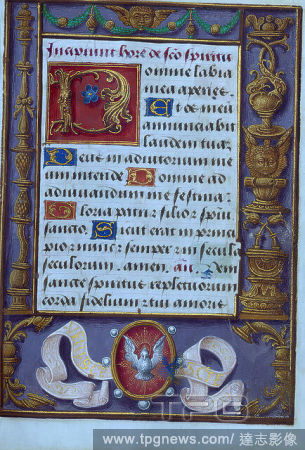 Incipiunt hore de sco spiritu
Domine labia
mea aperies.
Et os meu
annunciabit
laudem tuā.
Deus in adiutorium me
um intende Domine ad
adiuvandum me festina.
Gloria patri et filio et spiri
sancto. Sicut erat in princi
pio et nunc et semper et in secula
seculorum. amen. añ. Veni
sancte spiritus reple tuorum
corda fidelium et tui amoris
TPG
www.tpgnews.com/達志影像